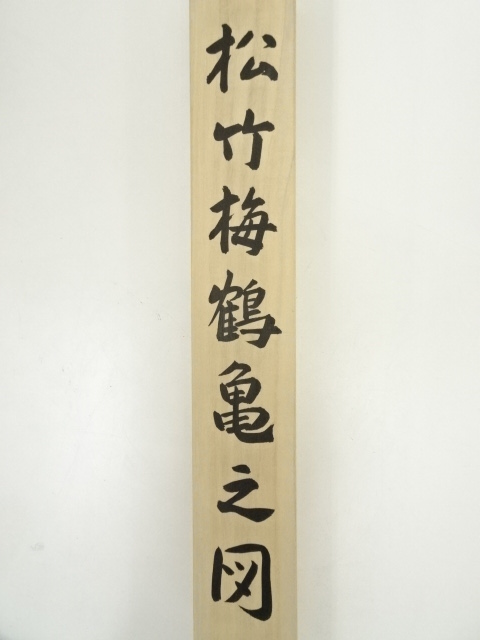 松竹梅鶴亀之図